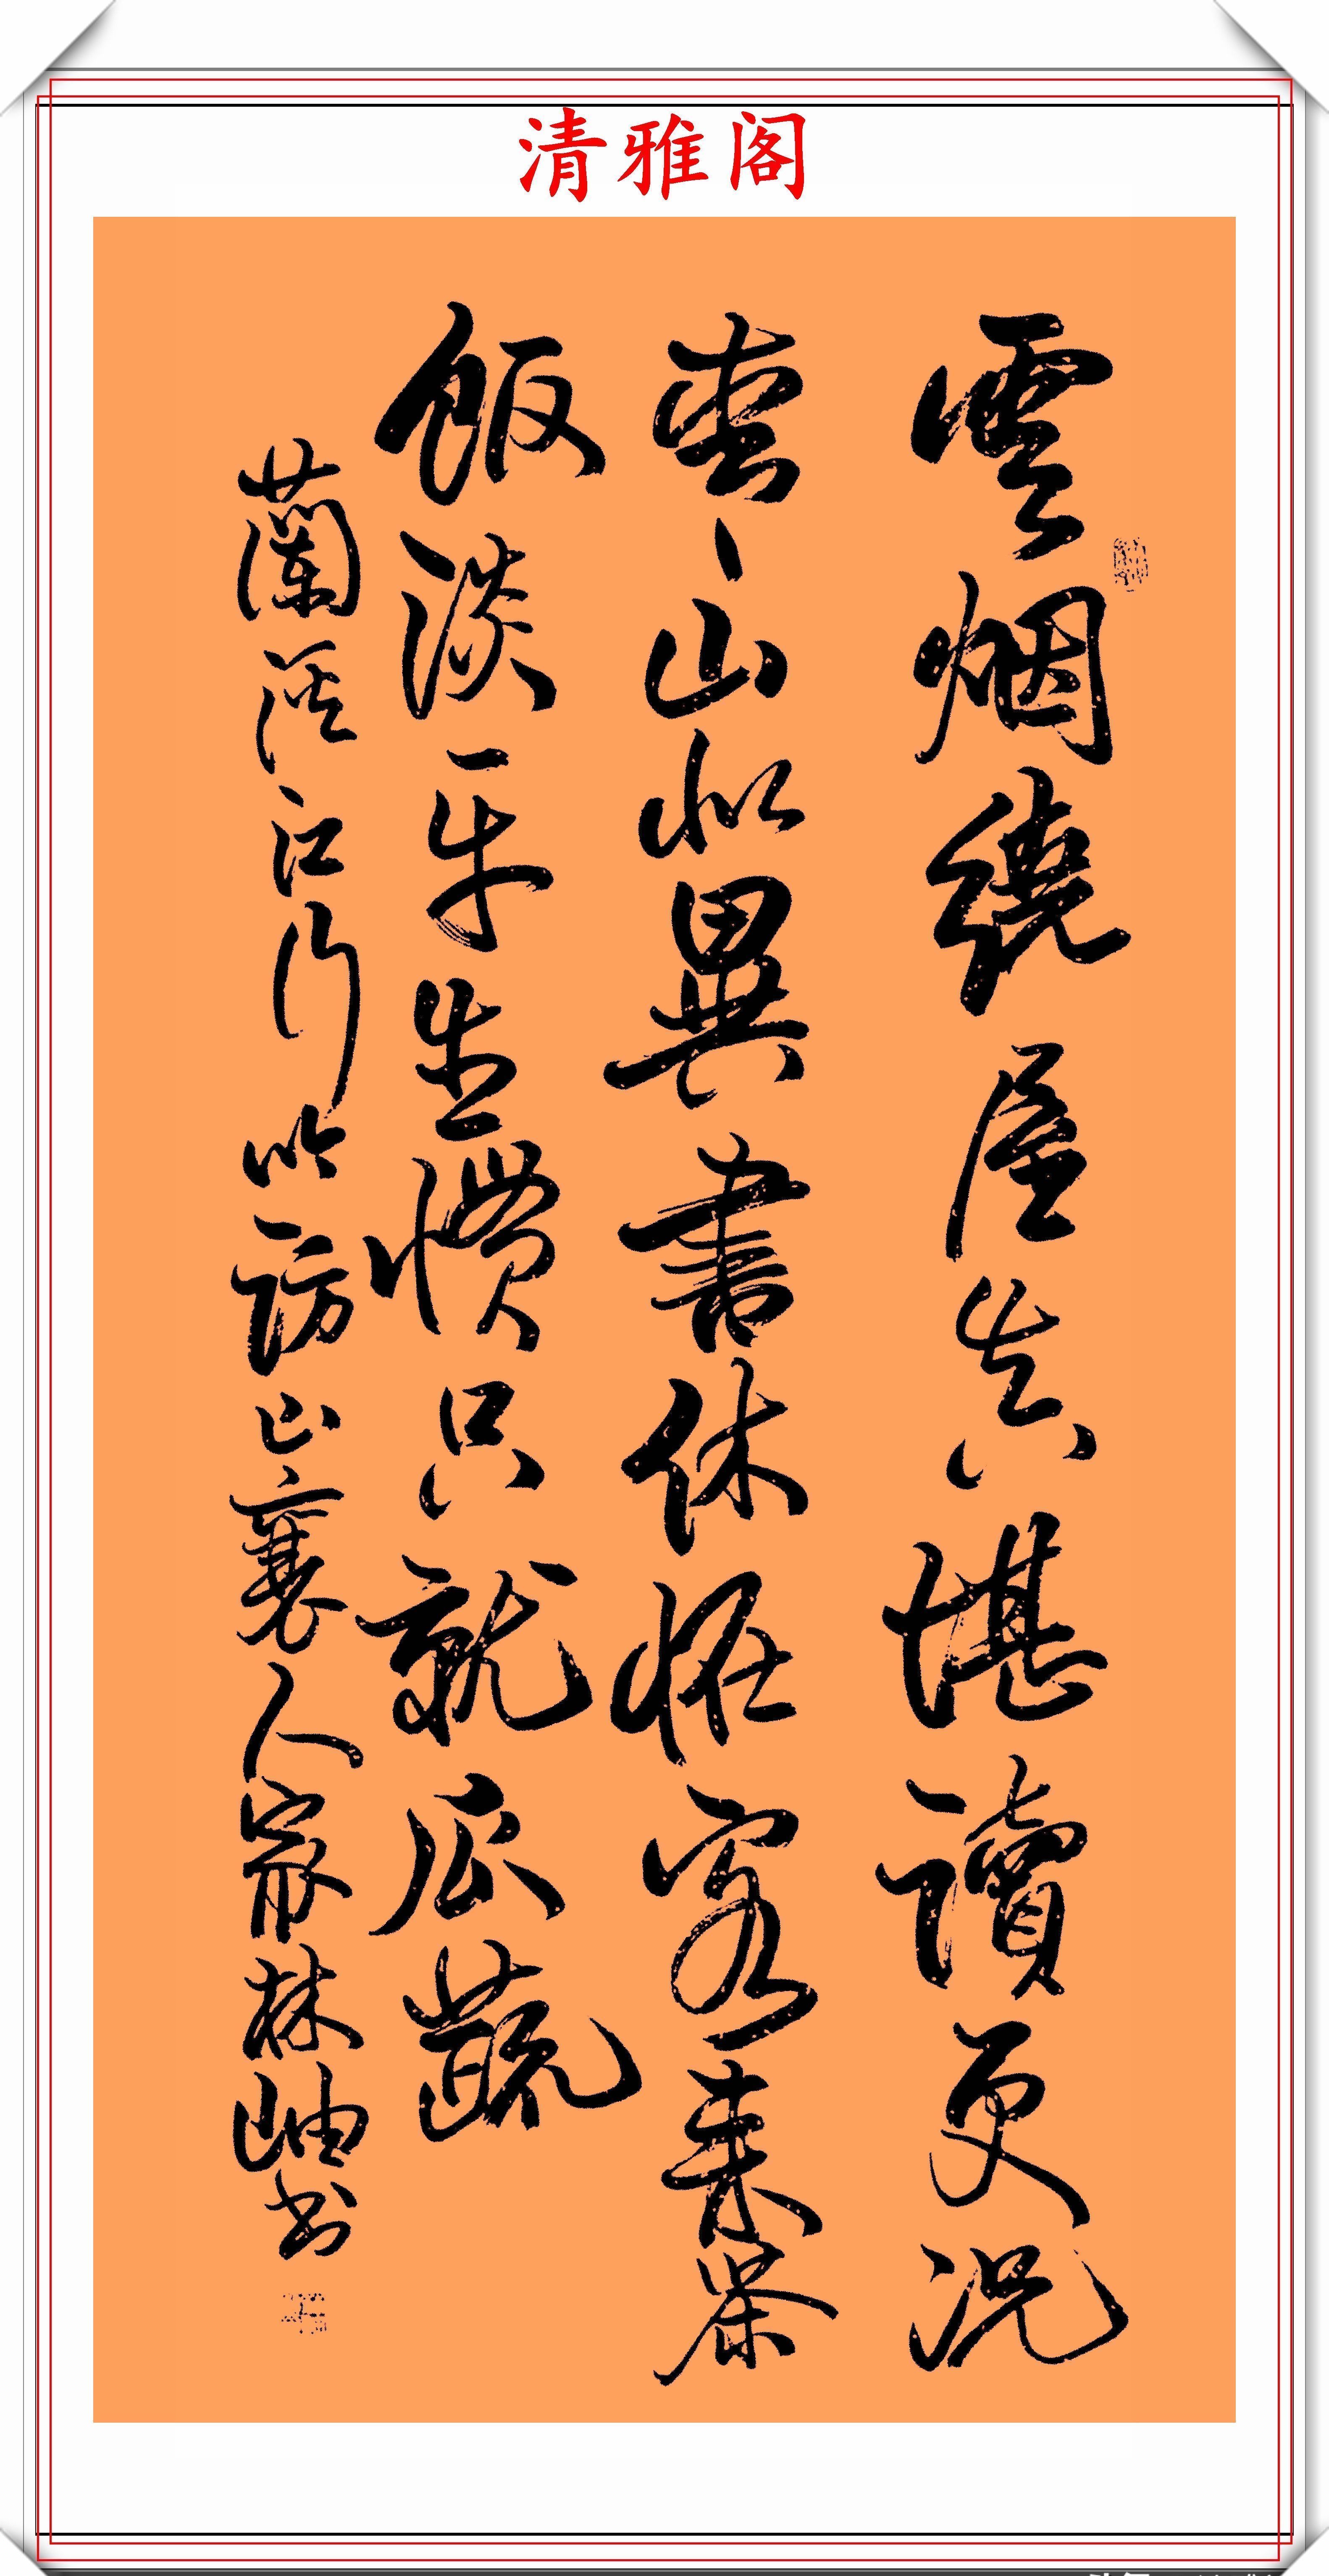 清雅阁
雲烟繞屋真堪讀更況
山似異書休怪客来茶
飯淡平生慣只就瓜蔬
蘭溪江行吟訪山裏人家林岫书